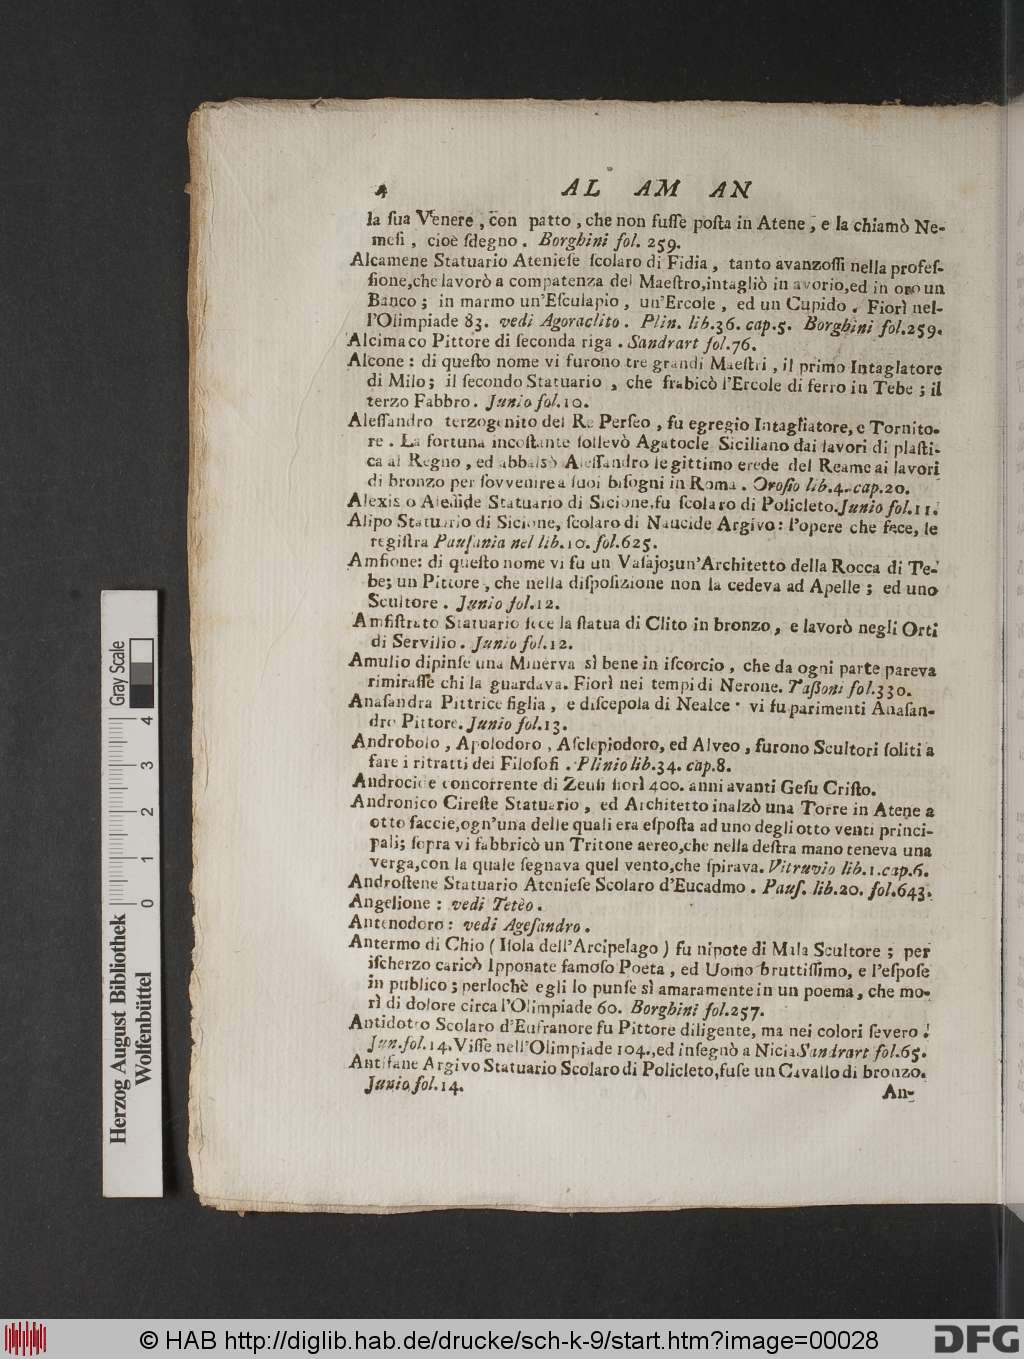 4 AL AM AN
la ſua Venere, con patto, che non fuſſe poſta in Atene, e la chiamò Ne-
meſi, cioè ſdegno. Borghini fol. 259.
Alcamene Statuario Atenieſe ſcolaro di Fidia, tanto avanzoſſi nella profeſ-
ſione, che lavorò a compatenza del Maeſtro, intagliò in avorio, ed in oro un
Banco; in marmo un'Eſculapio, un'Ercole, ed un Cupido. Fiorì nel-
l'Olimpiade 83. vedi Agoraclito. Plin. lib.36. cap.5. Borghini fol.259.
Alcimaco Pittore di ſeconda riga. Sandrart fol.76.
Alcone: di queſto nome vi furono tre grandi Maeſtri, il primo Intaglatore
di Milo; il ſecondo Statuario, che frabicò l'Ercole di ferro in Tebe; il
terzo Fabbro. Junio fol.10.
Aleſſandro terzogenito del Re Perſeo, fu egregio Intagliatore, e Tornito-
re. La fortuna incoſtante ſollevò Agatocle Siciliano dai lavori di plaſti-
ca al Regno, ed abbalsò Aleſſandro legittimo erede del Reame ai lavori
di bronzo per ſovvenire a ſuoi biſogni in Roma. Oroſio lib.4. cap.20.
Alexis o Aleſide Statuario di Sicione, fu ſcolaro di Policleto. Junio fol.11.
Alipo Statuario di Sicione, ſcolaro di Naucide Argivo: l'opere che fece, le
regiſtra Pauſania nel lib.10. fol.625.
Amfione: di queſto nome vi fu un Vaſajo; un'Architetto della Rocca di Te-
be; un Pittore, che nella diſpoſizione non la cedeva ad Apelle; ed uno
Scultore. Junio fol.12.
Amfiſtrato Statuario fece la ſtatua di Clito in bronzo, e lavorò negli Orti
di Servilio. Junio fol.12.
Amulio dipinſe una Minerva sì bene in iſcorcio, che da ogni parte pareva
rimiraſſe chi la guardava. Fiorì nei tempi di Nerone. Taßoni fol.330.
Anaſandra Pittrice figlia, e diſcepola di Nealce: vi fu parimenti Anaſan-
dro Pittore. Junio fol.13.
Androbolo, Apolodoro, Aſclepiodoro, ed Alveo, furono Scultori ſoliti a
fare i ritratti dei Filoſofi. Plinio lib.34. cap.8.
Androcide concorrente di Zeuſi fiorì 400. anni avanti Geſu Criſto.
Andronico Cireſte Statuario, ed Architetto inalzò una Torre in Atene a
otto faccie, ogn'una delle quali era eſpoſta ad uno degli otto venti princi-
pali; ſopra vi fabbricò un Tritone aereo, che nella deſtra mano teneva una
verga, con la quale ſegnava quel vento, che ſpirava. Vitruvio lib.1. cap.6.
Androſtene Statuario Atenieſe Scolaro d'Eucadmo. Pauſ. lib.20. fol.643.
Angelione: vedi Tetèo.
Antenodoro: vedi Ageſandro.
Antermo di Chio (Iſola dell'Arcipelago) fu nipote di Mala Scultore; per
iſcherzo caricò Ipponate famoſo Poeta, ed Uomo bruttiſſimo, e l'eſpoſe
in publico; perlochè egli lo punſe sì amaramente in un poema, che mo-
rì di dolore circa l'Olimpiade 60. Borghini fol.257.
Antidoto Scolaro d'Eufranore fu Pittore diligente, ma nei colori ſevero.
Jun. fol.14. Viſſe nell'Olimpiade 104., ed inſegnò a Nicia Sandrart fol.65.
Antifane Argivo Statuario Scolaro di Policleto, fuſe un Cavallo di bronzo.
Junio fol.14.
An-
Herzog August Bibliothek
Wolfenbüttel
Gray Scale
0 1 2 3 4
© HAB http://diglib.hab.de/drucke/sch-k-9/start.htm?image=00028
DFG